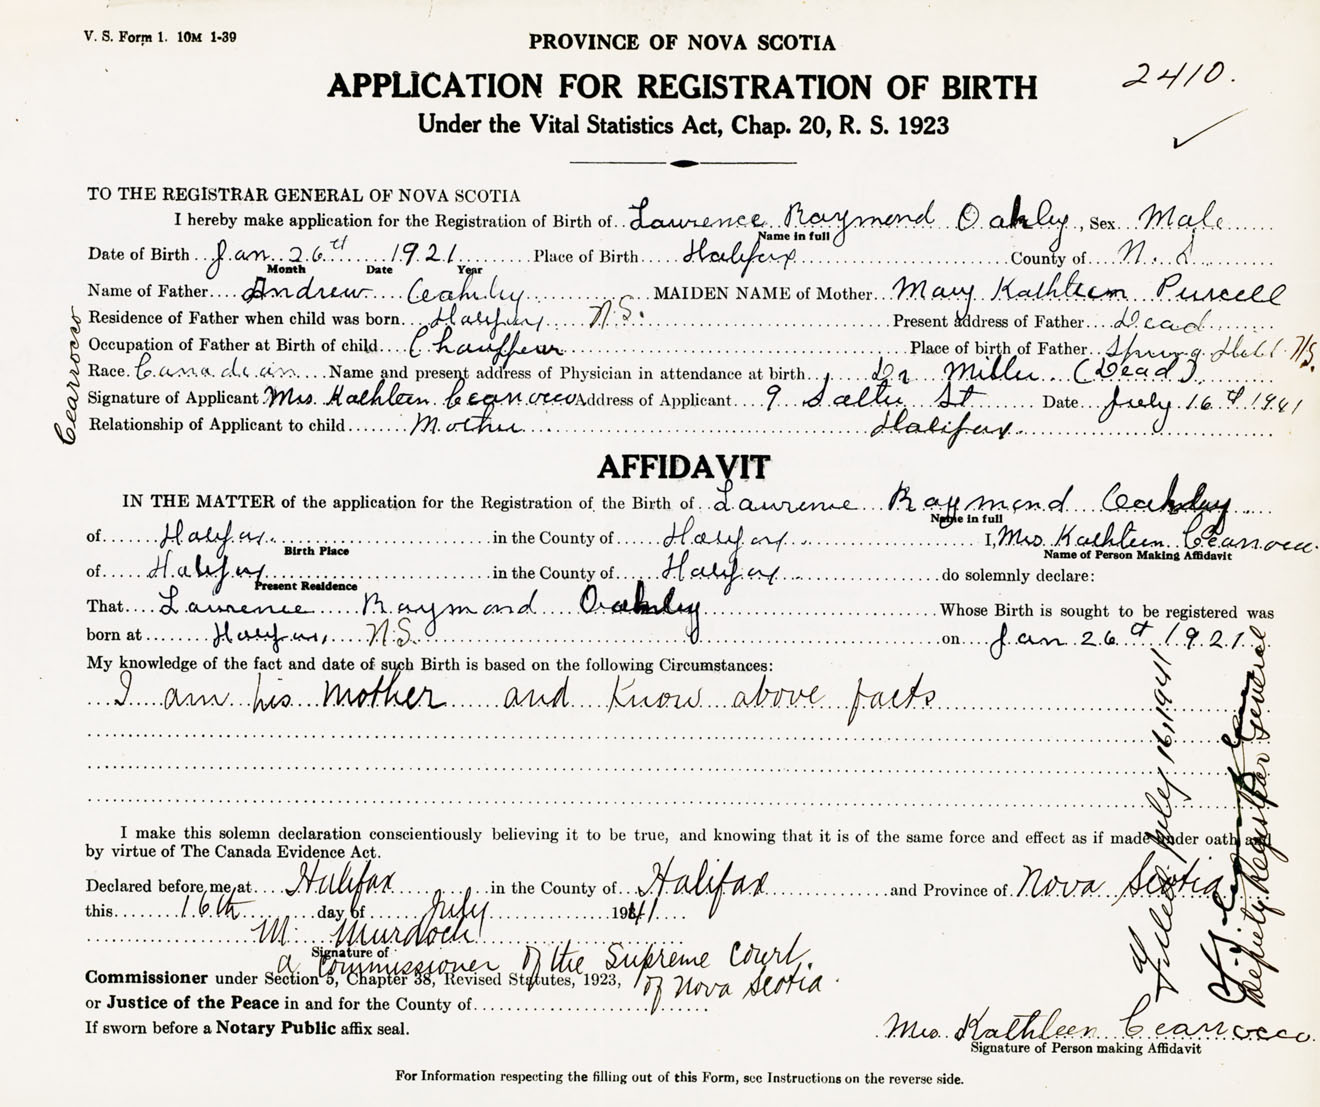 V. S. Form 1. 10M 1-39
PROVINCE OF NOVA SCOTIA
2410.
APPLICATION FOR REGISTRATION OF BIRTH
Under the Vital Statistics Act, Chap. 20, R. S. 1923
TO THE REGISTRAR GENERAL OF NOVA SCOTIA
I hereby make application for the Registration of Birth of Lawrence Raymond Oakley, Sex Male
Name in full
Date of Birth Jan. 26th 1921 Place of Birth Halifax County of N. S.
Month Date Year
Name of Father Andrew Oakley MAIDEN NAME of Mother Mary Kathleen Purcell
Residence of Father when child was born Halifax N.S. Present address of Father Dead
Occupation of Father at Birth of child Chauffeur Place of birth of Father Spring Hill N.S.
Race Canadian Name and present address of Physician in attendance at birth Dr Miller (Dead)
Signature of Applicant Mrs. Kathleen Address of Applicant 9 Salter St Date July 16th 1941
Relationship of Applicant to child Mother Halifax
Cearrocco
AFFIDAVIT
IN THE MATTER of the application for the Registration of the Birth of Lawrence Raymond Oakley
Name in full
of Halifax in the County of Halifax I, Mrs. Kathleen
Birth Place Name of Person Making Affidavit
of Halifax in the County of Halifax do solemnly declare:
Present Residence
That Lawrence Raymond Oakley Whose Birth is sought to be registered was
born at Halifax, N.S. on Jan 26th 1921
My knowledge of the fact and date of such Birth is based on the following Circumstances:
I am his mother and know above facts
I make this solemn declaration conscientiously believing it to be true, and knowing that it is of the same force and effect as if made under oath and
by virtue of The Canada Evidence Act.
Declared before me at Halifax in the County of Halifax and Province of Nova Scotia
this 16th day of July 1941
M. Murdoch
Signature of
a Commissioner of the Supreme Court
Commissioner under Section 5, Chapter 38, Revised Statutes, 1923, of Nova Scotia
or Justice of the Peace in and for the County of
If sworn before a Notary Public affix seal.
Mrs. Kathleen Cearrocco
Signature of Person making Affidavit
Filed July 16, 1941
Deputy Registrar General
For Information respecting the filling out of this Form, see Instructions on the reverse side.